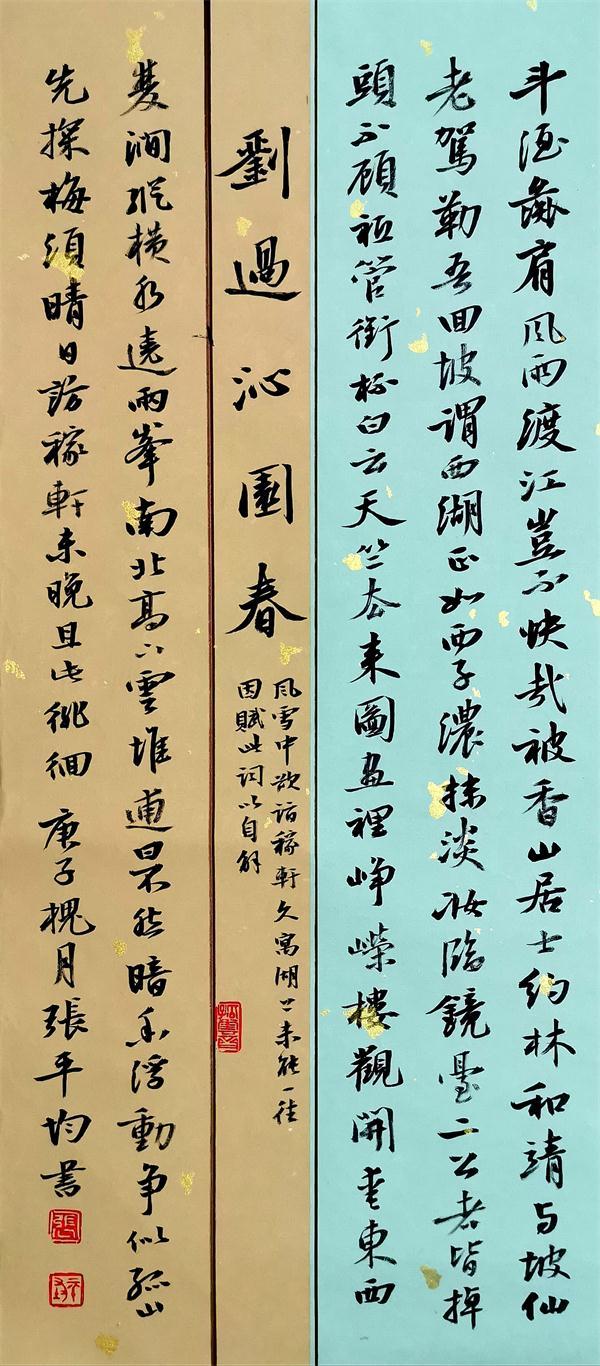 斗酒彘肩风雨渡江豈不快哉被香山居士约林和靖与坡仙
老駕勒吾回坡謂西湖正如西子濃抹淡妝臨鏡臺二公者皆掉
頭不顧祗管銜杯白云天竺去來圖畫裡崢嶸樓觀開愛東西
劉過沁園春
风雪中欲诣稼軒久寓湖上未能一往
因賦此词以自解
雙澗縱横水遶兩峯南北高下雲堆逋曰不然暗香浮動争似孤山
先探梅須晴日訪稼軒未晚且此徘徊 庚子槐月張平均書
張